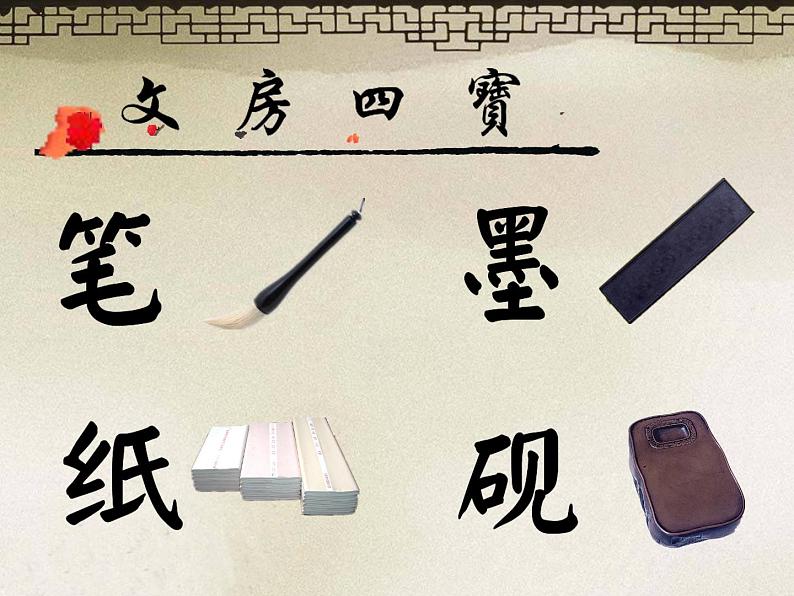 文房四寶
笔 墨
纸 砚